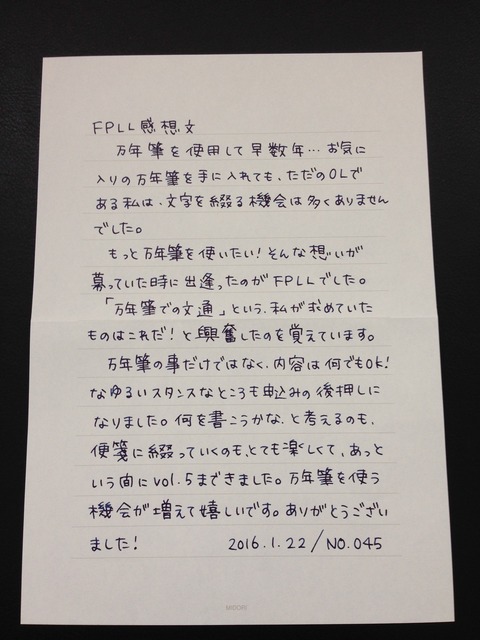 FPLL感想文
万年筆を使用して早数年…お気に
入りの万年筆を手に入れても、ただのOLで
ある私は、文字を綴る機会は多くありません
でした。
もっと万年筆を使いたい!そんな想いが
募っていた時に出逢ったのがFPLLでした。
「万年筆での文通」という、私が求めていた
ものはこれだ!と興奮したのを覚えています。
万年筆の事だけではなく、内容は何でもOK!
なゆるいスタンスなところも申込みの後押しに
なりました。何を書こうかな、と考えるのも、
便箋に綴っていくのも、とても楽しくて、あっと
いう間にvol.5まできました。万年筆を使う
機会が増えて嬉しいです。ありがとうござい
ました!　2016.1.22/NO.045
MIDORI